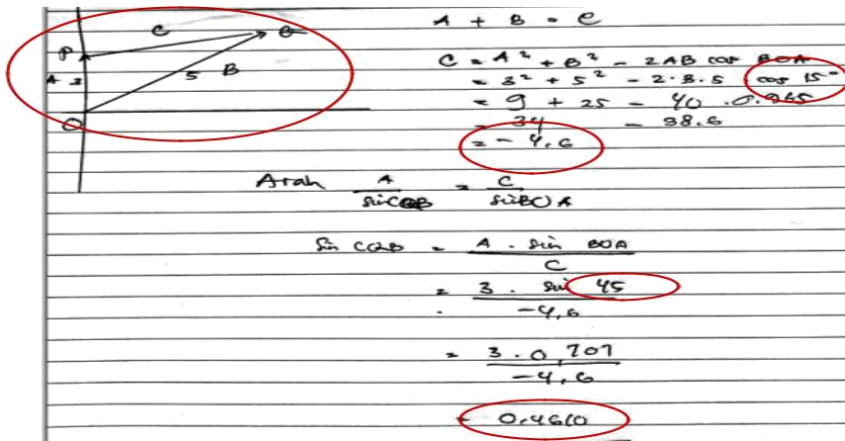 A + B = C
P
C
Q
A 3
5 B
O
C = A² + B² - 2AB cos BOA
= 3² + 5² - 2.3.5 . cos 15°
= 9 + 25 - 40 . 0.965
= 34 - 38.6
= - 4,6
Arah A / sin CQB = C / sin BOA
sin CQB = A . sin BOA / C
= 3 . sin 45 / -4,6
= 3 . 0,707 / -4,6
= 0,4610